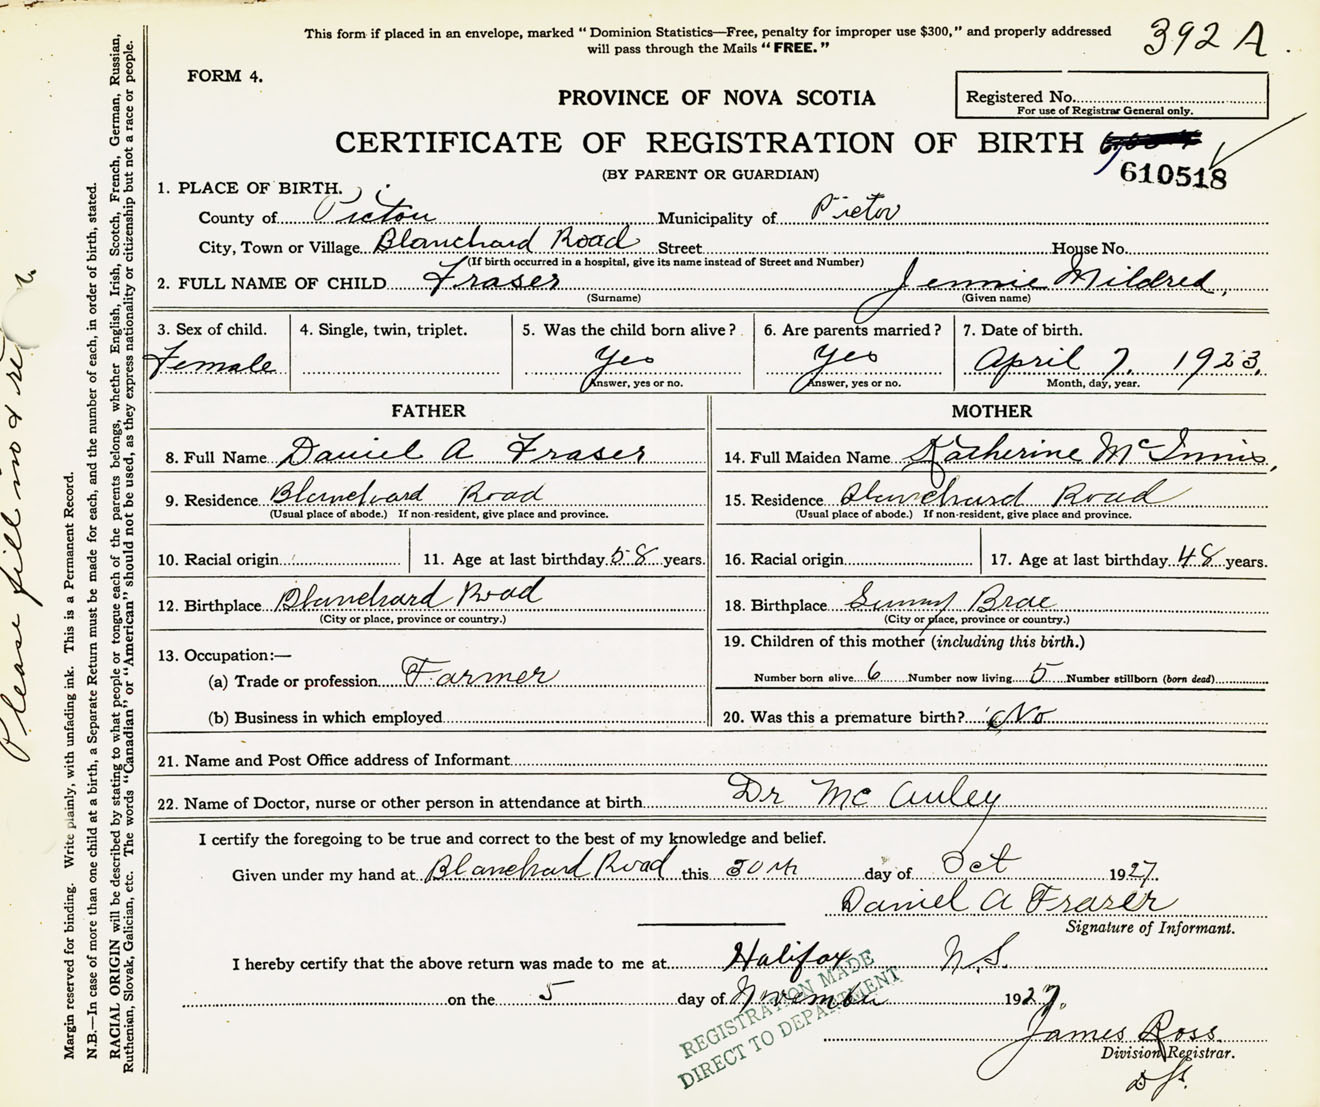 This form if placed in an envelope, marked "Dominion Statistics—Free, penalty for improper use $300," and properly addressed
will pass through the Mails "FREE."
392 A.
FORM 4.
PROVINCE OF NOVA SCOTIA
Registered No.
For use of Registrar General only.
CERTIFICATE OF REGISTRATION OF BIRTH
(BY PARENT OR GUARDIAN)
610518
1. PLACE OF BIRTH.
County of Pictou Municipality of Pictou
City, Town or Village Blanchard Road Street House No.
(If birth occurred in a hospital, give its name instead of Street and Number)
2. FULL NAME OF CHILD Fraser Jennie Mildred,
(Surname) (Given name)
3. Sex of child. 4. Single, twin, triplet. 5. Was the child born alive? 6. Are parents married? 7. Date of birth.
Female Yes Yes April 7. 1923.
Answer, yes or no. Answer, yes or no. Month, day, year.
FATHER MOTHER
8. Full Name Daniel A Fraser 14. Full Maiden Name Katherine McInnis,
9. Residence Blanchard Road 15. Residence Blanchard Road
(Usual place of abode.) If non-resident, give place and province. (Usual place of abode.) If non-resident, give place and province.
10. Racial origin 11. Age at last birthday 58 years. 16. Racial origin 17. Age at last birthday 48 years.
12. Birthplace Blanchard Road 18. Birthplace Sunny Brae
(City or place, province or country.) (City or place, province or country.)
19. Children of this mother (including this birth.)
13. Occupation:—
(a) Trade or profession Farmer Number born alive 6 Number now living 5 Number stillborn (born dead)
(b) Business in which employed 20. Was this a premature birth? No
21. Name and Post Office address of Informant
22. Name of Doctor, nurse or other person in attendance at birth Dr McAuley
I certify the foregoing to be true and correct to the best of my knowledge and belief.
Given under my hand at Blanchard Road this 30th day of Oct 1927.
Daniel A Fraser
Signature of Informant.
I hereby certify that the above return was made to me at Halifax N.S.
on the 5 day of November 1927.
REGISTRATION MADE
DIRECT TO DEPARTMENT
James Ross
Division Registrar.
Please fill in & re
Margin reserved for binding. Write plainly, with unfading ink. This is a Permanent Record.
N.B.—In case of more than one child at a birth, a Separate Return must be made for each, and the number of each, in order of birth, stated.
RACIAL ORIGIN will be described by stating to what people or tongue each of the parents belongs, whether English, Irish, Scotch, French, German, Russian,
Ruthenian, Slovak, Galician, etc. The words "Canadian" or "American" should not be used, as they express nationality or citizenship but not a race or people.